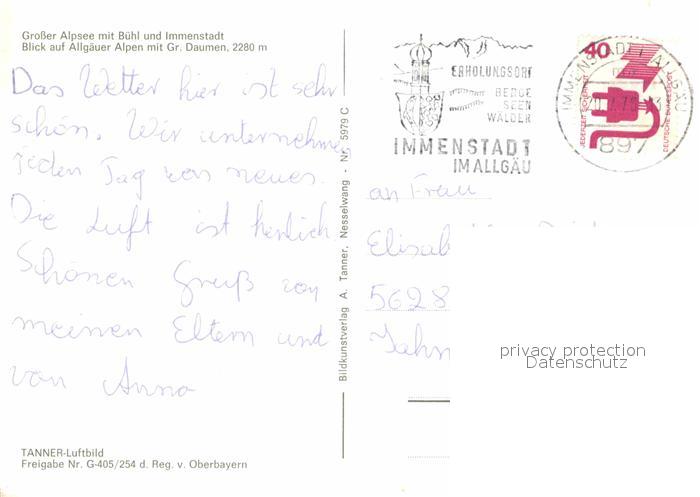 Großer Alpsee mit Bühl und Immenstadt
Blick auf Allgäuer Alpen mit Gr. Daumen, 2280 m
Das Wetter hier ist sehr
schön. Wir unternehmen
jeden Tag was neues.
Die Luft ist herlich.
Schönen Gruß von
meinen Eltern und
von Anna
TANNER-Luftbild
Freigabe Nr. G-405/254 d. Reg. v. Oberbayern
Bildkunstverlag A. Tanner, Nesselwang - Nr. 5979 C
ERHOLUNGSORT
BERGE
SEEN
WÄLDER
IMMENSTADT
IM ALLGÄU
40
JEDERZEIT SICHERHEIT
DEUTSCHE BUNDESPOST
IMMENSTADT, ALLGÄU
897
an Frau
Elisab
5628
Jahn
privacy protection
Datenschutz